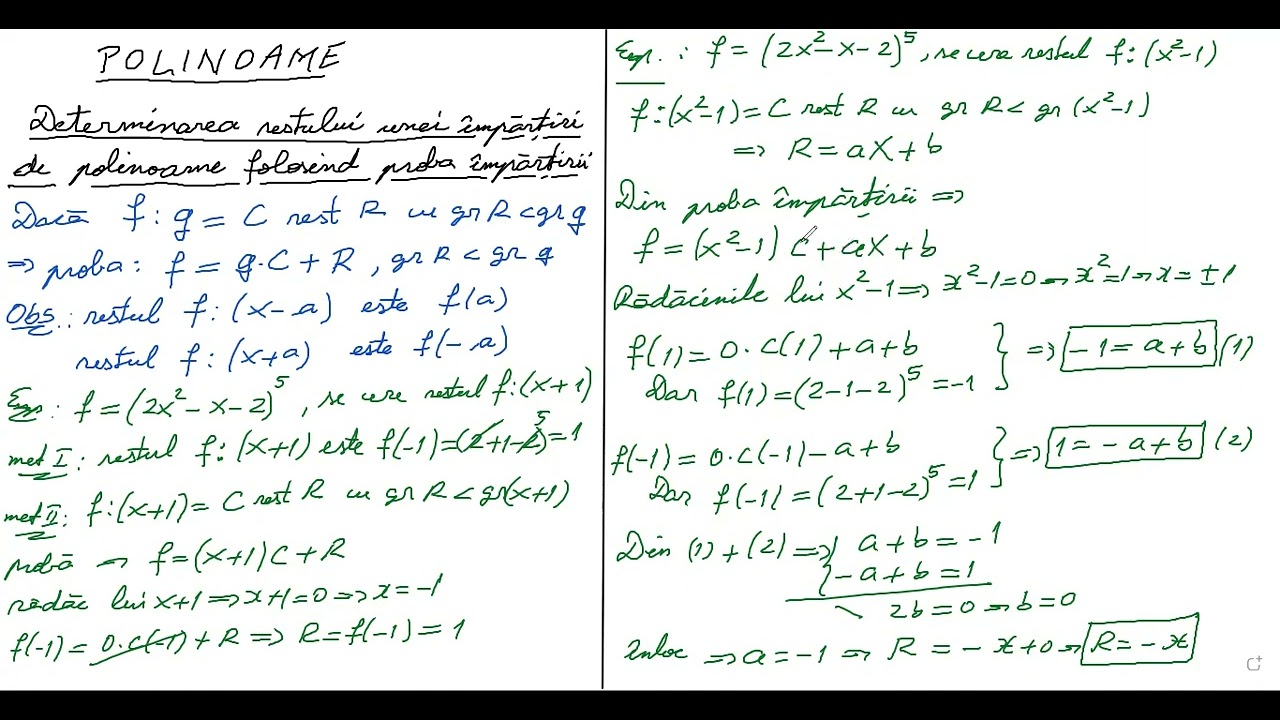 POLINOAME
Determinarea restului unei împărțiri
de polinoame folosind proba împărțirii
Dacă f : g = C rest R cu gr R < gr g
⇒ proba: f = g·C + R , gr R < gr g
Obs.: restul f : (x-a) este f(a)
restul f : (x+a) este f(-a)
Exp: f = (2x²-x-2)⁵, se cere restul f:(x+1)
met I: restul f: (x+1) este f(-1)=(2+1-2)⁵=1
met II: f:(x+1)= C rest R cu gr R < gr(x+1)
probă ⇒ f=(x+1)C+R
rădăc lui x+1 ⇒ x+1=0 ⇒ x=-1
f(-1) = 0·C(-1) + R ⇒ R=f(-1) = 1
Exp.: f = (2x²-x-2)⁵, se cere restul f: (x²-1)
f:(x²-1)= C rest R cu gr R < gr (x²-1)
⇒ R = aX+b
Din proba împărțirii ⇒
f = (x²-1) C + aX + b
Rădăcinile lui x²-1 ⇒ x²-1=0 ⇒ x²=1 ⇒ x=±1
f(1) = 0·C(1) + a+b } ⇒ -1 = a+b (1)
Dar f(1) = (2-1-2)⁵ = -1
f(-1) = 0·C(-1) - a+b } ⇒ 1 = -a+b (2)
Dar f(-1) = (2+1-2)⁵ = 1
Din (1) + (2) ⇒ { a+b = -1
-a+b = 1
2b = 0 ⇒ b=0
Inloc ⇒ a=-1 ⇒ R = -x+0 ⇒ R = -x